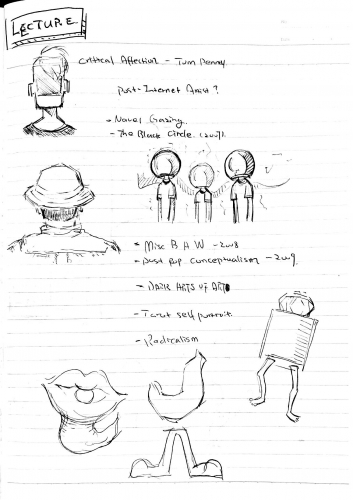 LECTURE
Critical Affection - Tom Penny.
Post-Internet Artist?
- Navel Gazing.
- The Black Circle. (2007).
- Misc B A W - 2008
- post pop conceptualism - 2009.
- DARK ARTS OF ART
- Tarot self portrait.
- Radicalism